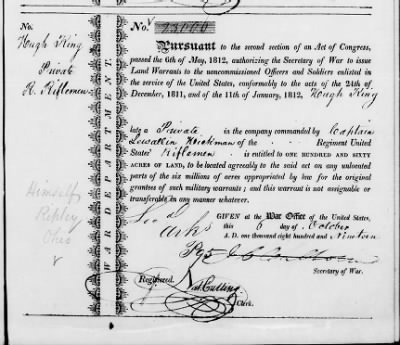 No.
Hugh King
Private
R. Riflemen
Himself
Ripley
Ohio
WAR DEPARTMENT.
No. 23000
Pursuant to the second section of an Act of Congress,
passed the 6th of May, 1812, authorizing the Secretary of War to issue
Land Warrants to the uncommissioned Officers and Soldiers enlisted in
the service of the United States, conformably to the acts of the 24th of
December, 1811, and of the 11th of January, 1812, Hugh King
late a Private in the company commanded by Captain
Hickman of the Regiment United
States' Riflemen is entitled to ONE HUNDRED AND SIXTY
ACRES OF LAND, to be located agreeably to the said act on any unlocated
parts of the six millions of acres appropriated by law for the original
grantees of such military warrants; and this warrant is not assignable or
transferable in any manner whatever.
GIVEN at the War Office of the United States,
this 6 day of October
A. D. one thousand eight hundred and Nineteen
J C Calhoun
Secretary of War.
Registered
Clerk.